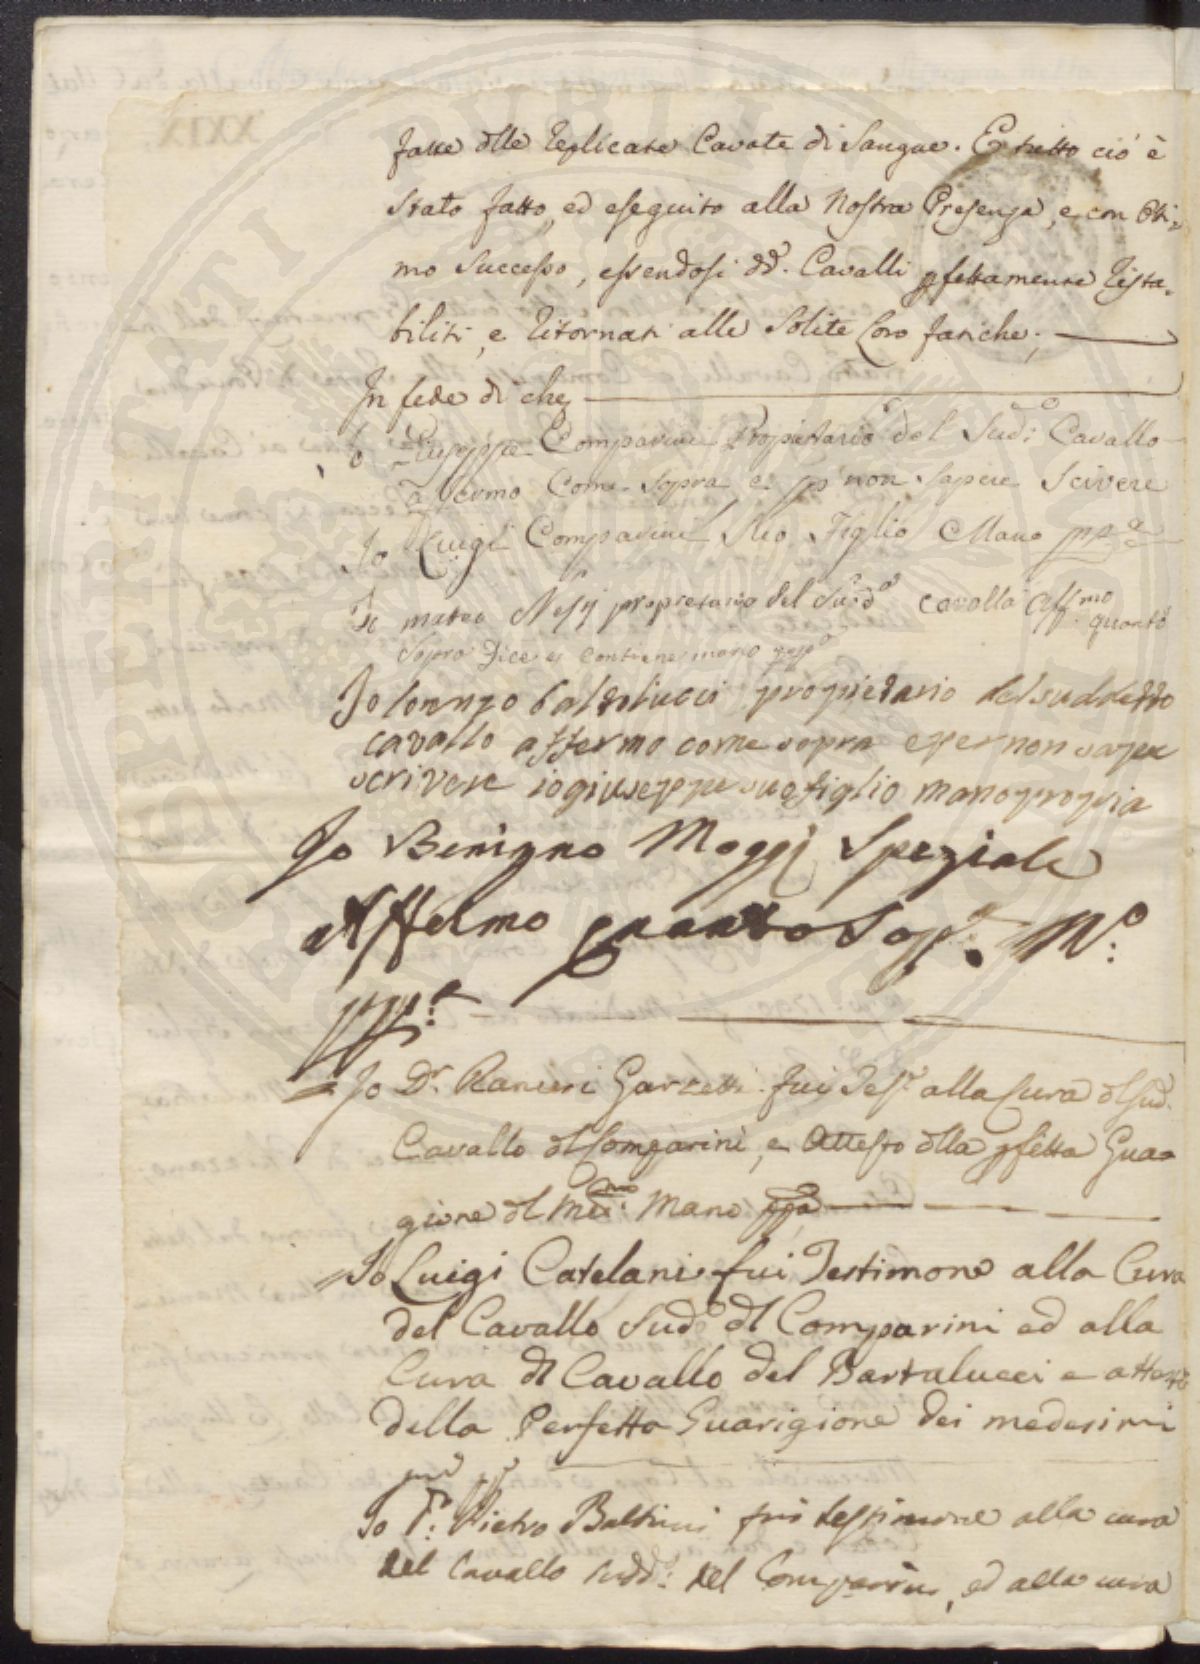 fatte dlle replicate Cavate di Sangue. E tutto ciò è
stato fatto, ed eseguito alla nostra Presenza, e con Otti=
mo successo, essendosi dd. Cavalli pfettamente rista=
biliti, e ritornati alle Solite Loro fatiche.
In fede di che
Io Giuseppe Comparini Propietario del Sud:o Cavallo
afermo Come sopra e p non sapere scivere
Io Luigi Comparini Suo Figlio Mano pp:a
Io matteo Nesij propretario del Sudd.o cavallo Aff:mo quanto
Sopra Dice e contiene mano
Io lorenzo baldolucci propietario del suddetto
cavallo affermo come sopra e per non sapere
scrivere io giuseppe suo figlio mano propria
Io Benigno Moggi Speziale
Affelmo quanto Sop.a M.o
pp:a
Io D.r Ranieri Garzetti fui Tes.e alla Cura dl sud.
Cavallo dl Comparini, e Attesto dlla pfetta Gua=
gione dl Med:mo Mano ppa
Io Luigi Catelani fui Testimone alla Cura
del Cavallo Sud.o dl Comparini ed alla
Cura dl Cavallo del Bartalucci e attesto
della Perfetta Guarigione dei medesimi
Io P: Pietro Baldini fui testimone alla cura
del Cavallo sudd: del Comparini, ed alla cura